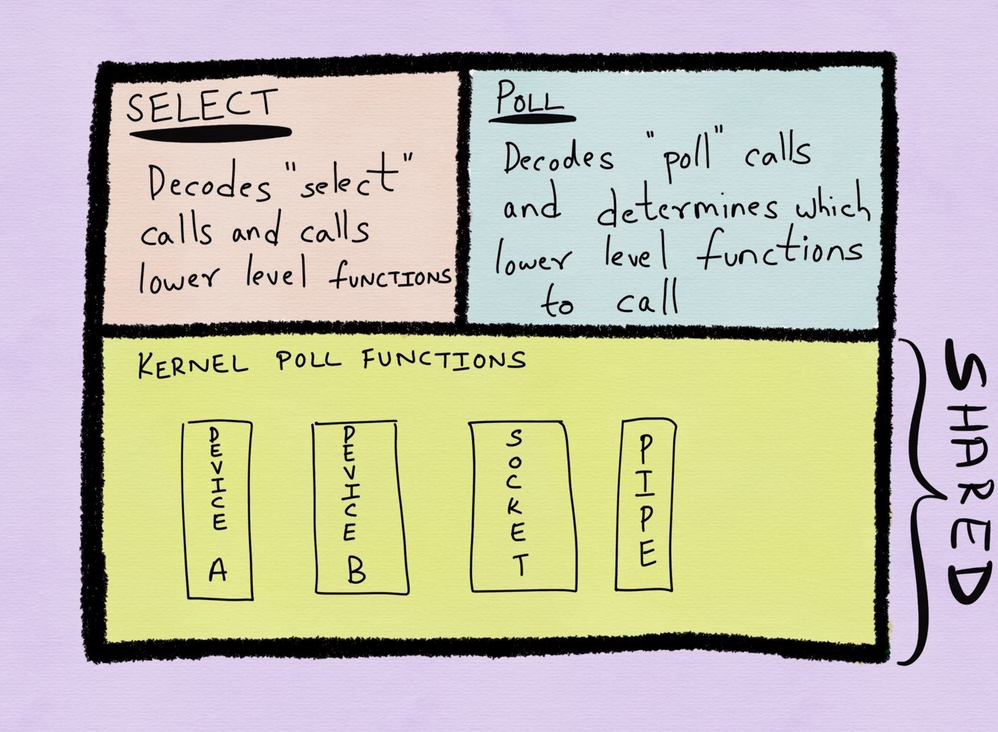 SELECT
Decodes "select"
calls and calls
lower level FUNCTIONS
POLL
Decodes "poll" calls
and determines which
lower level functions
to call
KERNEL POLL FUNCTIONS
DEVICE A
DEVICE B
SOCKET
PIPE
SHARED